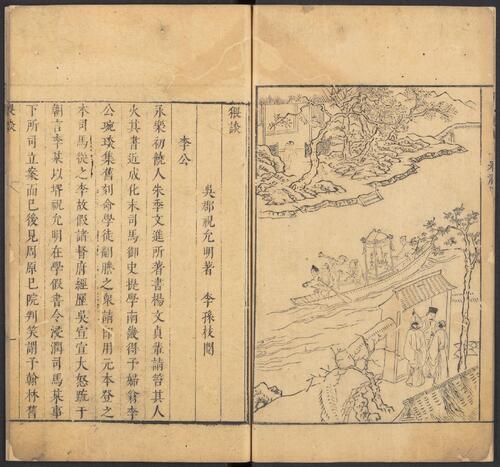 猥談
吳郡祝允明著 李孫枝閱
李公
永樂初饒人朱季文進所著書楊文貞輩請笞其人
火其書近成化末司馬御史提學南畿得予婦翁李
公琬琰集舊刻命學徒翻謄之衆請官用元本登之
本司馬從之李故假諸督府經歷吳宣宣大怒疏于
朝言李某以壻祝允明在學假書令浸潤司馬某事
下所司立案而已後見周原已院判笑謂予翰林舊
猥談